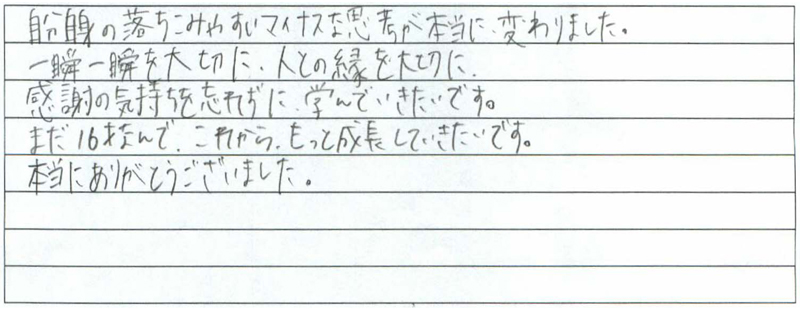 自分自身の落ちこみやすいマイナスな思考が本当に、変わりました。
一瞬一瞬を大切に、人との縁を大切に、
感謝の気持ちを忘れずに、学んでいきたいです。
まだ16才なんで、これから、もっと成長していきたいです。
本当にありがとうございました。